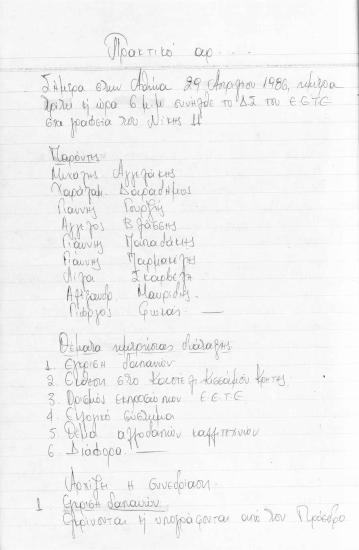 Πρακτικό αρ....
Σήμερα στην Αθήνα 29 Απριλίου 1986, ημέρα
Τρίτη η ώρα 6 μ.μ συνήλθε το ΔΣ του ΕΕΤΕ
στα γραφεία του Νίκης 11
Παρόντες
Μιχάλης Αγγελάκης
Χαράλαμ. Δαραδήμος
Γιάννης Γουρζής
Άγγελος Βλάσσης
Γιάννης Παπαδάκης
Γιάννης Παρμακέλης
Λίζα Σκαρβέλη
Αλέξανδρ. Μαυρίδης
Γιώργος Φωκάς
Θέματα ημερήσιας διάταξης
1. Έγκριση δαπανών
2. Έκθεση στο Καστέλι Κισσάμου Κρήτης
3. Ορισμός εκπροσώπων ΕΕΤΕ
4. Εκλογικό σύστημα
5. Θέμα αλλοδαπών καλλιτεχνών
6. Διάφορα.
Αρχίζει η συνεδρίαση
1 Έγκριση δαπανών
Εγκρίνονται η υπογράφονται από τον Πρόεδρο